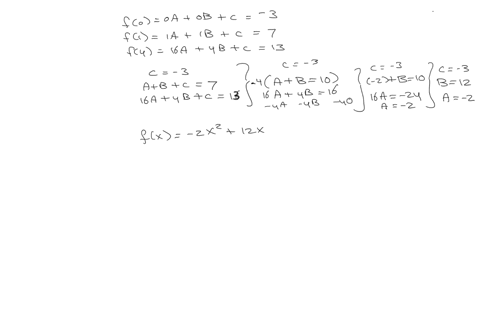 f(0) = 0A + 0B + C = -3
f(1) = 1A + 1B + C = 7
f(4) = 16A + 4B + C = 13
C = -3
A+B+C = 7
16A+4B+C = 13
C = -3
-4(A+B=10)
16A+4B=16
-4A -4B -40
C = -3
(-2)+B=10
16A=-24
A=-2
C=-3
B=12
A=-2
f(x) = -2x² + 12x